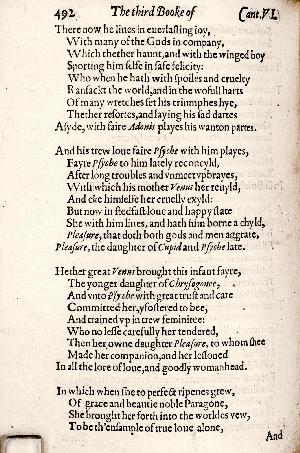 492 The third Booke of Cant. VI.
There now he liues in euerlasting ioy,
With many of the Gods in company,
Which thether haunt, and with the winged boy
Sporting him selfe in safe felicity:
Who when he hath with spoiles and cruelty
Ransackt the world, and in the wofull harts
Of many wretches set his triumphes hye,
Thether resortes, and laying his sad dartes
Asyde, with faire Adonis playes his wanton partes.
And his trew loue faire Psyche with him playes,
Fayre Psyche to him lately reconcyld,
After long troubles and vnmeet vpbrayes,
With which his mother Venus her reuyld,
And eke himselfe her cruelly exyld:
But now in stedfast loue and happy state
She with him liues, and hath him borne a chyld,
Pleasure, that doth both gods and men aggrate,
Pleasure, the daughter of Cupid and Psyche late.
Hether great Venus brought this infant fayre,
The yonger daughter of Chrysogonee,
And vnto Psyche with great trust and care
Committed her, yfostered to bee,
And trained vp in trew feminitee:
Who no lesse carefully her tendered,
Then her owne daughter Pleasure, to whom shee
Made her companion, and her lessoned
In all the lore of loue, and goodly womanhead.
In which when she to perfect ripenes grew,
Of grace and beautie noble Paragone,
She brought her forth into the worldes vew,
To be th'ensample of true loue alone,
And